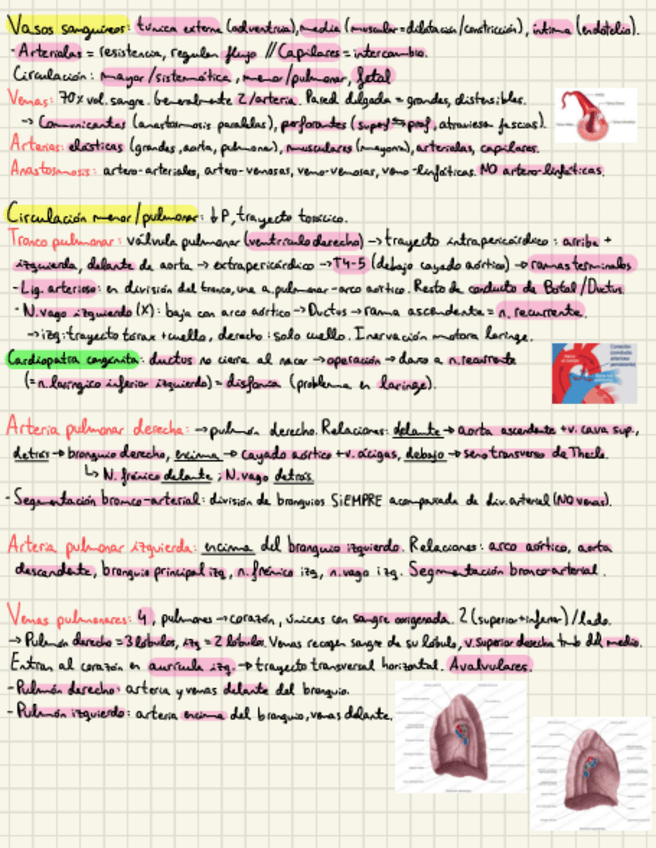 Vasos sanguíneos: túnica externa (adventicia), media (muscular=dilatación/constricción), íntima (endotelio).
- Arteriolas = resistencia, regulan flujo // Capilares = intercambio.
Circulación: mayor/sistemática, menor/pulmonar, fetal
Venas: 70% vol. sangre. Generalmente 2/arteria. Pared delgada = grandes, distensibles.
→ Comunicantes (anastomosis paralelas), perforantes (superf⇆prof, atraviesa fascias).
Arterias: elásticas (grandes, aorta, pulmonar), musculares (mayoría), arteriolas, capilares.
Anastomosis: artero-arteriales, artero-venosas, veno-venosas, veno-linfáticas. NO artero-linfáticas.
Circulación menor/pulmonar: ↓P, trayecto torácico.
Tronco pulmonar: válvula pulmonar (ventrículo derecho) → trayecto intrapericárdico: arriba +
izquierda, delante de aorta → extrapericárdico → T4-5 (debajo cayado aórtico) → ramas terminales
- Lig. arterioso: en división del tronco, une a.pulmonar-arco aórtico. Resto de conducto de Botal/Ductus.
- N.vago izquierdo (X): baja con arco aórtico → Ductus → rama ascendente = n. recurrente.
→ izq: trayecto tórax + cuello, derecho: solo cuello. Inervación motora laringe.
Cardiopatía congénita: ductus no cierra al nacer → operación → daño a n.recurrente
(= n. laríngico inferior izquierdo) = disfonía (problema en laringe).
Arteria pulmonar derecha: → pulmón derecho. Relaciones: delante → aorta ascendente + v. cava sup.,
detrás → bronquio derecho, encima → cayado aórtico + v. ácigas, debajo → seno transverso de Theile.
↳ N. frénico delante; N. vago detrás.
- Segmentación bronco-arterial: división de bronquios SIEMPRE acompañada de div. arterial (NO venas).
Arteria pulmonar izquierda: encima del bronquio izquierdo. Relaciones: arco aórtico, aorta
descendente, bronquio principal izq, n. frénico izq, n. vago izq. Segmentación bronco-arterial.
Venas pulmonares: 4, pulmones → corazón, únicas con sangre oxigenada. 2 (superior+inferior)/lado.
→ Pulmón derecho = 3 lóbulos, izq = 2 lóbulos. Venas recogen sangre de su lóbulo, v. superior derecha tmb del medio.
Entran al corazón en aurícula izq. → trayecto transversal horizontal. Avalvulares.
- Pulmón derecho: arteria y venas delante del bronquio.
- Pulmón izquierdo: arteria encima del bronquio, venas delante.